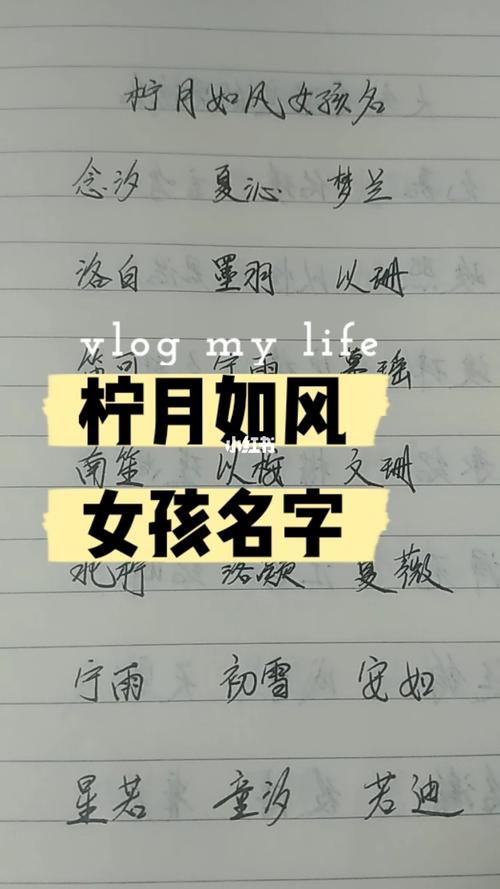 柠月如风女孩名
念汐 夏沁 梦兰
洛白 墨羽 以珊
vlog my life
宁雨 慕瑶
柠月如风
小红书
南笙 以梅 文珊
女孩名字
洛颜 夏薇
宁雨 初雪 安如
星若 童汐 若迪